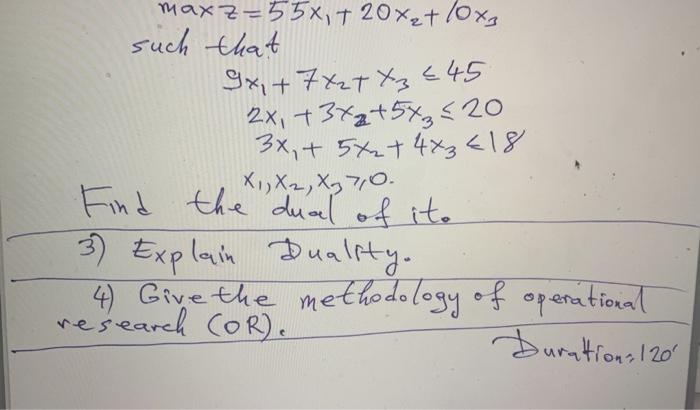 max z = 55x₁ + 20x₂ + 10x₃
such that
9x₁ + 7x₂ + x₃ ≤ 45
2x₁ + 3x₂ + 5x₃ ≤ 20
3x₁ + 5x₂ + 4x₃ ≤ 18
x₁, x₂, x₃ ≥ 0.
Find the dual of it.
3) Explain Duality.
4) Give the methodology of operational
research (OR).
Duration: 120'